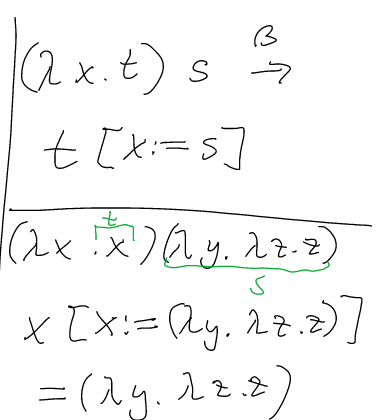 (λx.t) s β→
t [x:=s]
t
(λx.x)(λy.λz.z)
s
x [x:=(λy.λz.z)]
=(λy.λz.z)